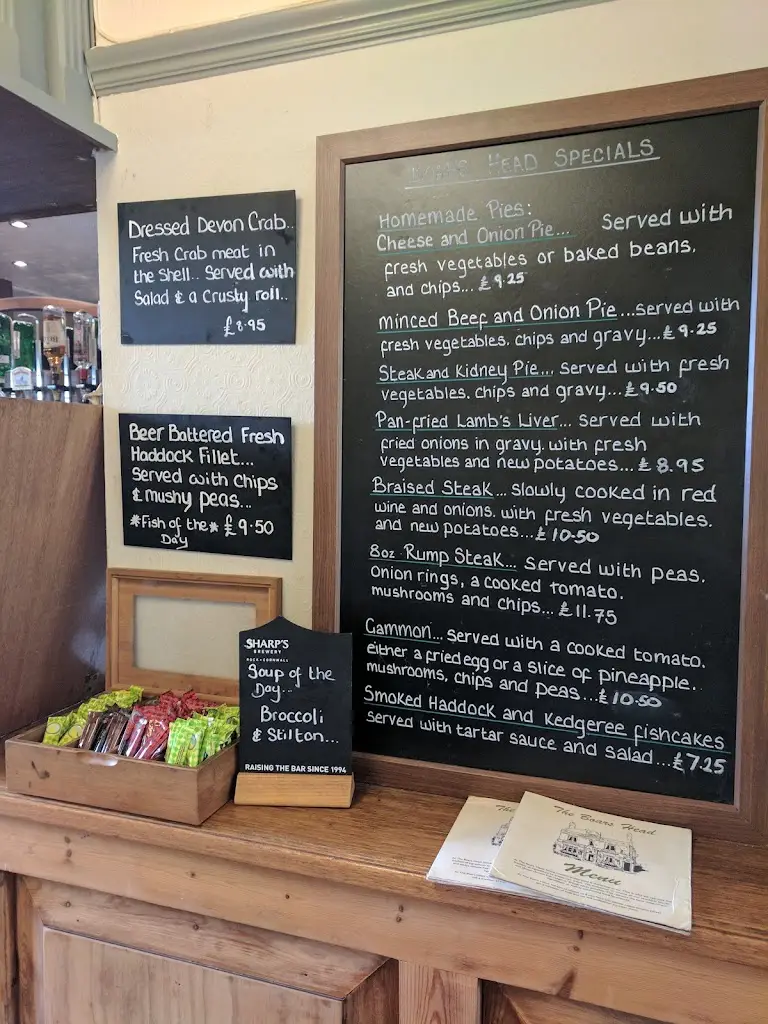 Dressed Devon Crab..
Fresh Crab meat in
the Shell.. Served with
Salad & a Crusty roll..
£8.95
Beer Battered Fresh
Haddock Fillet...
Served with Chips
& mushy peas...
*Fish of the* £9.50
Day
SHARP'S
BREWERY
ROCK · CORNWALL
Soup of the
Day...
Broccoli
& Stilton...
RAISING THE BAR SINCE 1994
HEAD SPECIALS
Homemade Pies:
Cheese and Onion Pie... Served with
fresh vegetables or baked beans.
and chips... £9.25
Minced Beef and Onion Pie...served with
fresh vegetables. chips and gravy...£9.25
Steak and Kidney Pie... served with fresh
vegetables. chips and gravy...£9.50
Pan-fried Lamb's Liver... served with
fried onions in gravy. with fresh
vegetables and new potatoes...£8.95
Braised Steak... slowly cooked in red
wine and onions. with fresh vegetables.
and new potatoes...£10.50
8oz Rump Steak... served with peas.
Onion rings, a cooked tomato.
mushrooms and chips...£11.75
Gammon... served with a cooked tomato.
either a fried egg or a slice of pineapple.
mushrooms, chips and peas...£10.50
Smoked Haddock and Kedgeree fishcakes
served with tartar sauce and salad...£7.25
The Boars Head
Menu